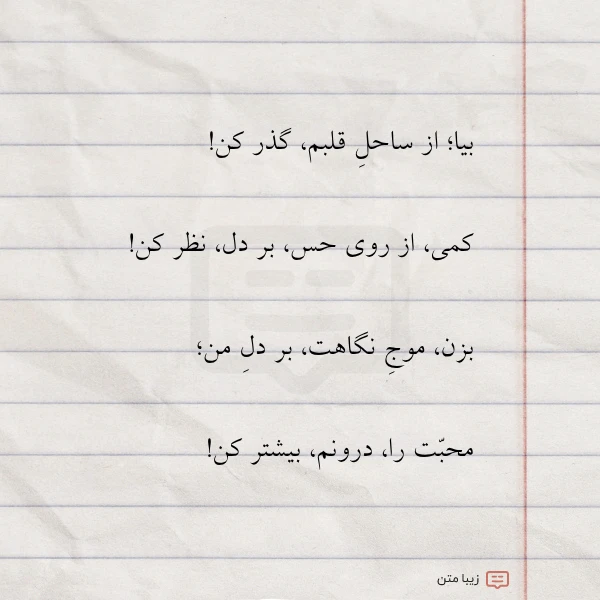 بیا؛ از ساحلِ قلبم، گذر کن!
کمی، از روی حس، بر دل، نظر کن!
بزن، موجِ نگاهت، بر دلِ من؛
محبّت را، درونم، بیشتر کن!
زیبا متن